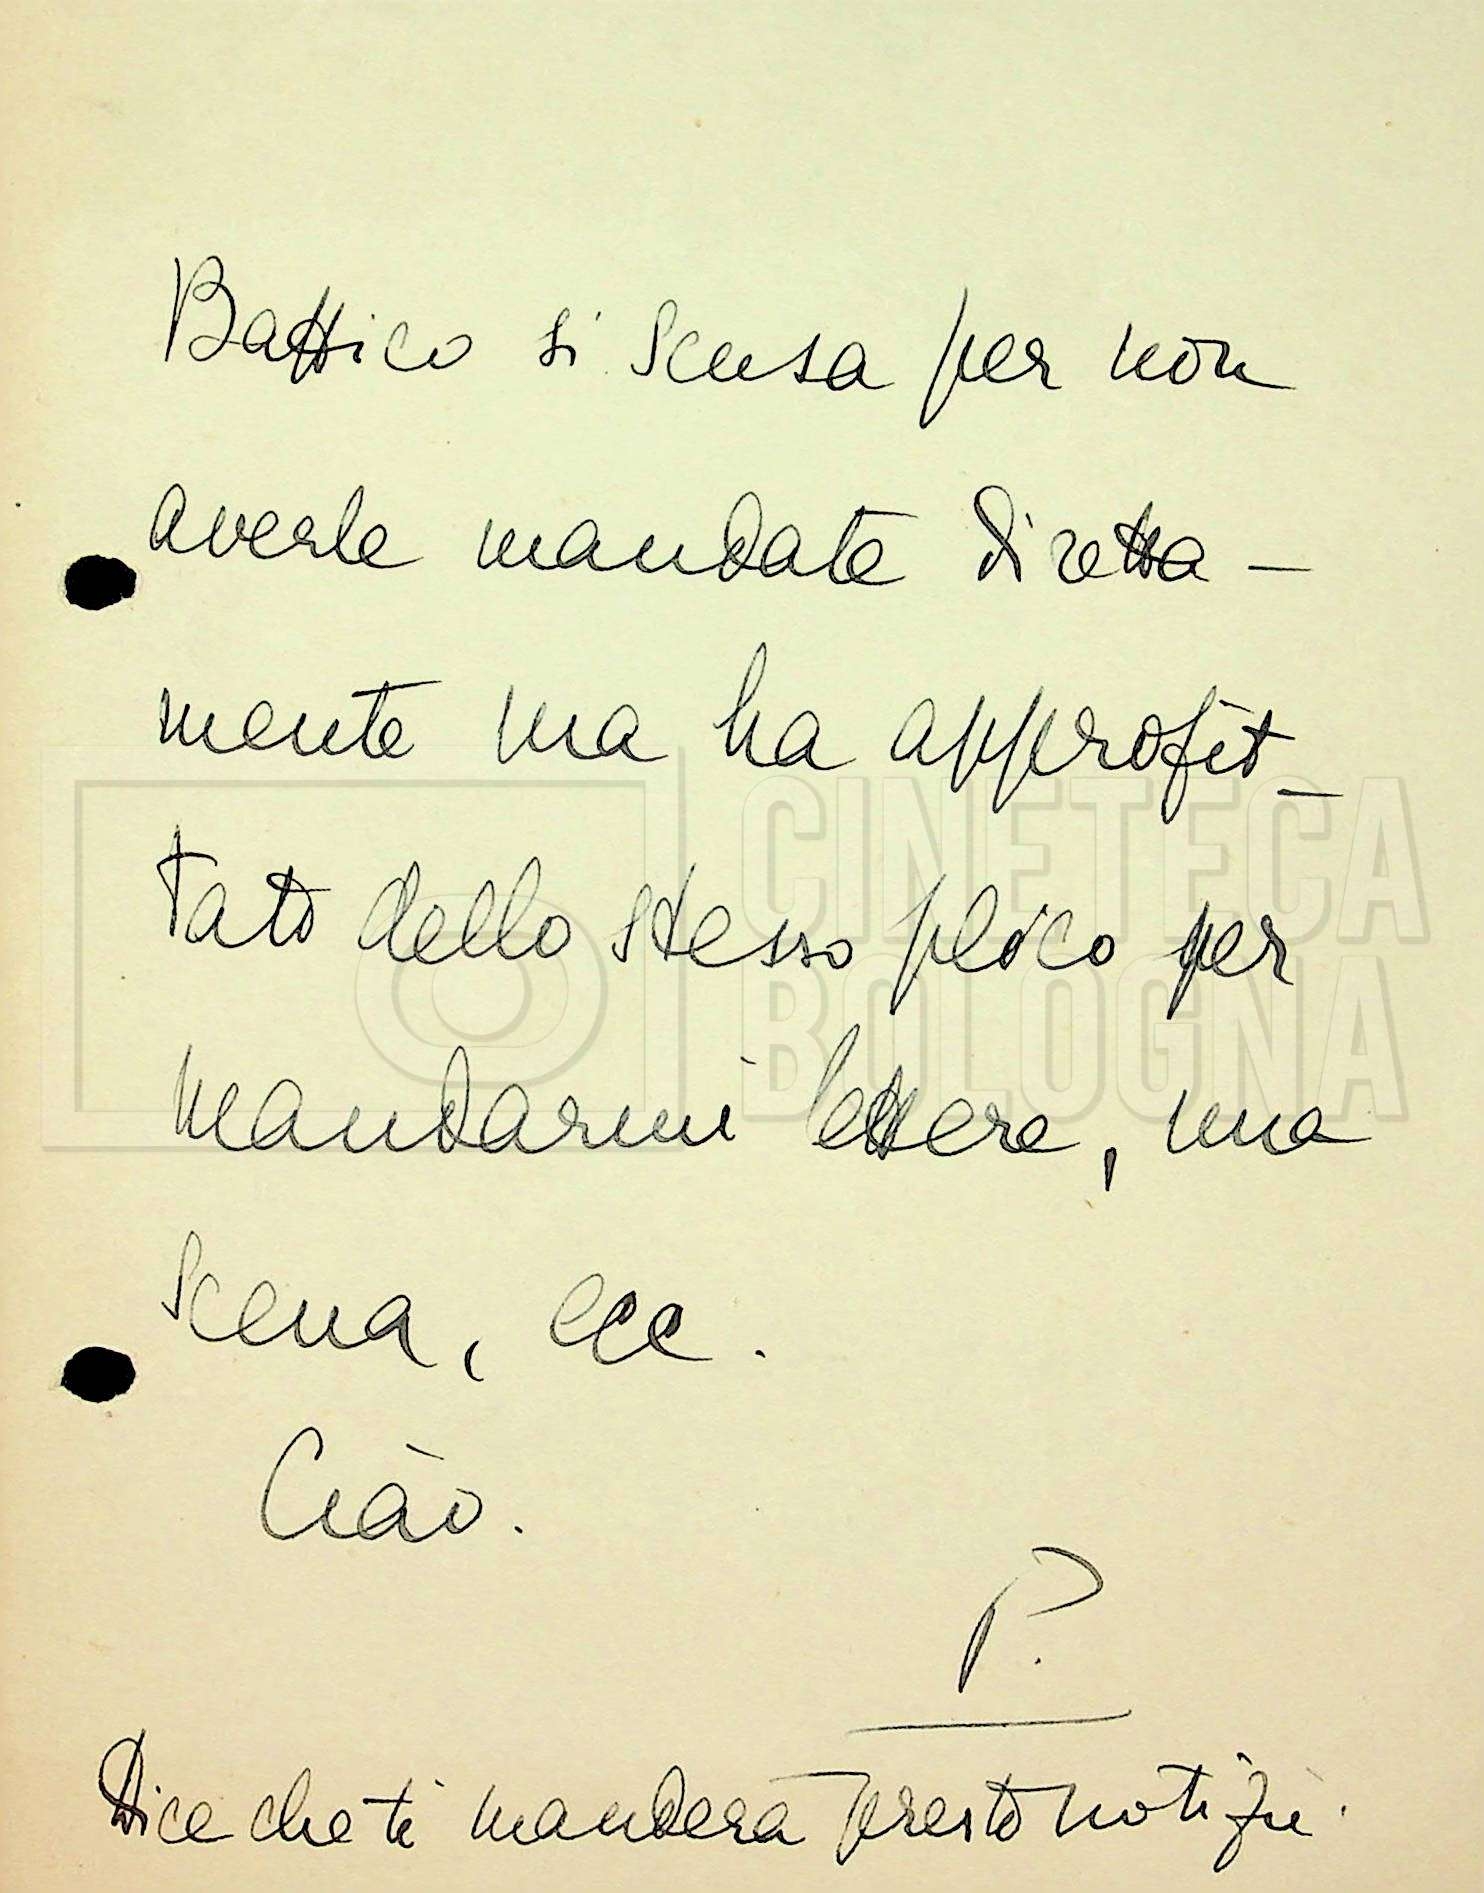 Battico si scusa per non
averle mandate diretta-
mente ma ha approfit-
tato dello stesso plico per
mandarmi lettere, una
scena, ecc.
Ciao.
P.
Dice che ti manderà presto notizie.
CINETECA
BOLOGNA